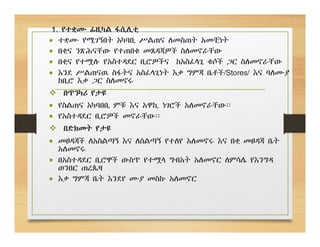 1. የተቋሙ ፊዚካል ፋሲሊቲ
• ተቋሙ የሚገኝበት አካባቢ ሥልጠና ለመስጠት አመቺነት
• በቂና ንጽሕናቸው የተጠበቁ መጸዳጃዎች ስለመኖራቸው
• በቂና የተሟሉ የአስተዳደር ቢሮዎችና ከአስፈላጊ ቁሶች ጋር ስለመኖራቸው
• እንደ ሥልጠናዉ ስፋትና አስፈላጊነት እቃ ግምጃ ቤቶች/Stores/ እና ባለሙያ ከቢሮ እቃ ጋር ስለመኖሩ
❖ በጥንካሬ የታዩ
• የስልጠና አካባበቢ ምቹ እና አዋኪ ነገሮች አለመኖራቸው፡፡
• የአስተዳደር ቢሮዎች መኖራቸው፡፡
❖ በድክመት የታዩ
• መፀዳጃች ለአሰልጣኝ እና ለሰልጣኝ የተለየ አለመኖሩ እና በቂ መፀዳጃ ቤት አለመኖሩ
• በአስተዳደር ቢሮዋች ውስጥ የተሟላ ግብአት አለመኖር ለምሳሌ የእንግዳ ወንበር ጠረጴዛ
• እቃ ግምጃ ቤት እንደየ ሙያ መስኩ አለመኖር